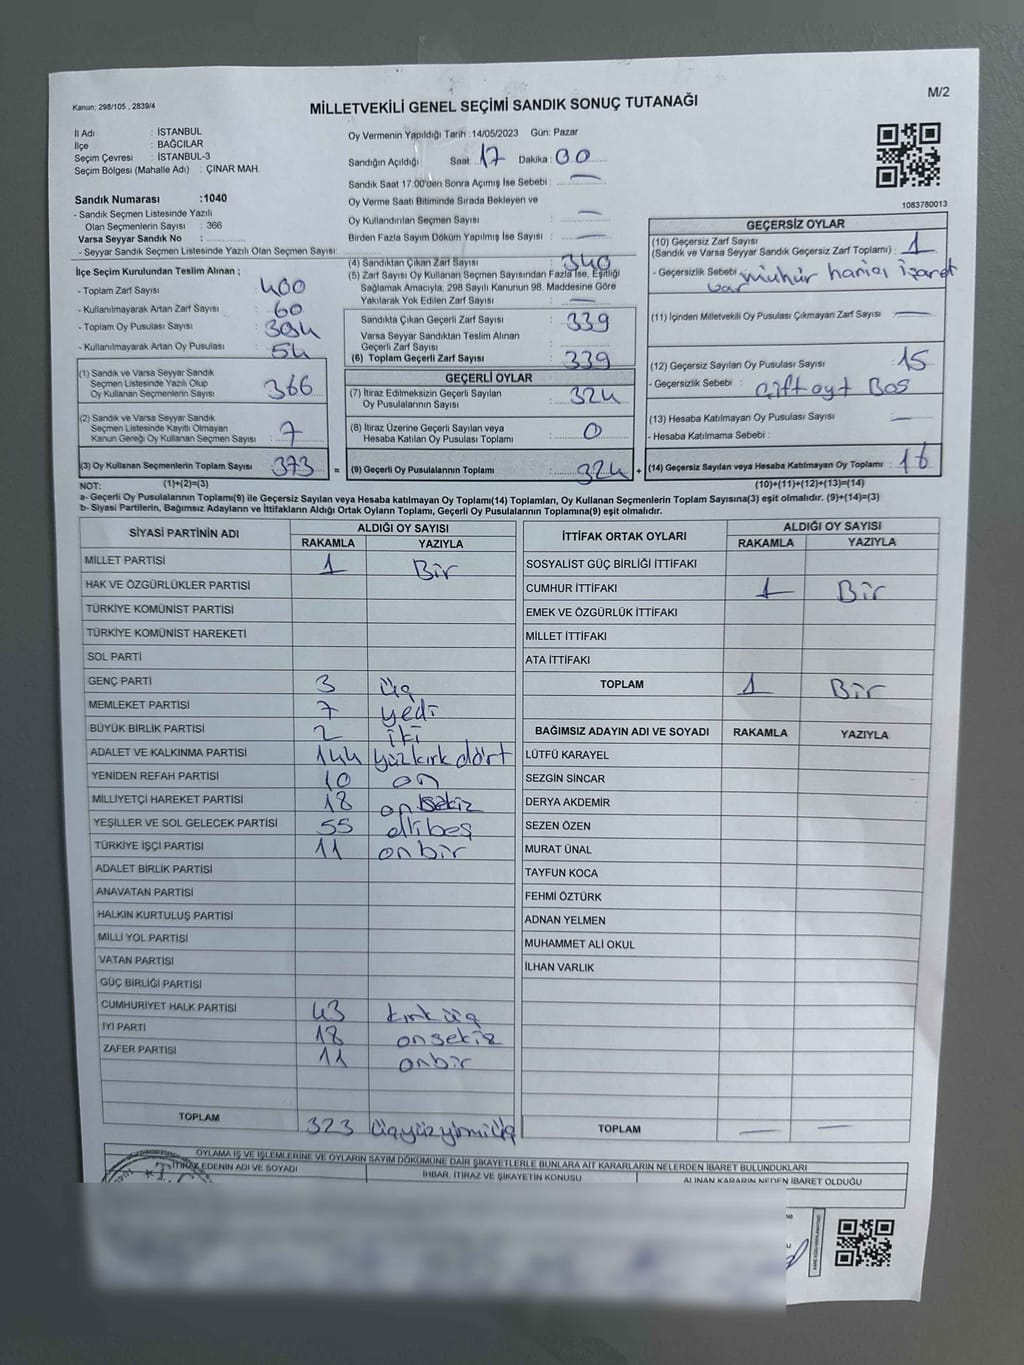 Kanun; 298/105 , 2839/4
MİLLETVEKİLİ GENEL SEÇİMİ SANDIK SONUÇ TUTANAĞI
M/2
İl Adı : İSTANBUL
İlçe : BAĞCILAR
Seçim Çevresi : İSTANBUL-3
Seçim Bölgesi (Mahalle Adı) : ÇINAR MAH.
Sandık Numarası :1040
- Sandık Seçmen Listesinde Yazılı
Olan Seçmenlerin Sayısı : 366
Varsa Seyyar Sandık No :
- Seyyar Sandık Seçmen Listesinde Yazılı Olan Seçmen Sayısı:
İlçe Seçim Kurulundan Teslim Alınan ;
- Toplam Zarf Sayısı : 400
- Kullanılmayarak Artan Zarf Sayısı : 60
- Toplam Oy Pusulası Sayısı : 394
- Kullanılmayarak Artan Oy Pusulası : 54
(1) Sandık ve Varsa Seyyar Sandık
Seçmen Listesinde Yazılı Olup
Oy Kullanan Seçmenlerin Sayısı : 366
(2) Sandık ve Varsa Seyyar Sandık
Seçmen Listesinde Kayıtlı Olmayan
Kanun Gereği Oy Kullanan Seçmen Sayısı : 7
(3) Oy Kullanan Seçmenlerin Toplam Sayısı : 373 =
Oy Vermenin Yapıldığı Tarih :14/05/2023 Gün: Pazar
Sandığın Açıldığı Saat: 17 Dakika : 00
Sandık Saat 17:00'den Sonra Açımış İse Sebebi : —
Oy Verme Saati Bitiminde Sırada Bekleyen ve
Oy Kullandırılan Seçmen Sayısı : —
Birden Fazla Sayım Döküm Yapılmış İse Sayısı : —
(4) Sandıktan Çıkan Zarf Sayısı : 340
(5) Zarf Sayısı Oy Kullanan Seçmen Sayısından Fazla İse, Eşitliği
Sağlamak Amacıyla, 298 Sayılı Kanunun 98. Maddesine Göre
Yakılarak Yok Edilen Zarf Sayısı : —
Sandıkta Çıkan Geçerli Zarf Sayısı : 339
Varsa Seyyar Sandıktan Teslim Alınan
Geçerli Zarf Sayısı :
(6) Toplam Geçerli Zarf Sayısı : 339
GEÇERLİ OYLAR
(7) İtiraz Edilmeksizin Geçerli Sayılan
Oy Pusulalarının Sayısı : 324
(8) İtiraz Üzerine Geçerli Sayılan veya
Hesaba Katılan Oy Pusulası Toplamı : 0
(9) Geçerli Oy Pusulalarının Toplamı : 324 +
1083780013
GEÇERSİZ OYLAR
(10) Geçersiz Zarf Sayısı
(Sandık ve Varsa Seyyar Sandık Geçersiz Zarf Toplamı) : 1
- Geçersizlik Sebebi : mühür harici işaret
var
(11) İçinden Milletvekili Oy Pusulası Çıkmayan Zarf Sayısı : —
(12) Geçersiz Sayılan Oy Pusulası Sayısı : 15
- Geçersizlik Sebebi : Çift oyt Boş
(13) Hesaba Katılmayan Oy Pusulası Sayısı : —
- Hesaba Katılmama Sebebi :
(14) Geçersiz Sayılan veya Hesaba Katılmayan Oy Toplamı : 16
NOT: (1)+(2)=(3)
(10)+(11)+(12)+(13)=(14)
a- Geçerli Oy Pusulalarının Toplamı(9) ile Geçersiz Sayılan veya Hesaba katılmayan Oy Toplamı(14) Toplamları, Oy Kullanan Seçmenlerin Toplam Sayısına(3) eşit olmalıdır. (9)+(14)=(3)
b- Siyasi Partilerin, Bağımsız Adayların ve İttifakların Aldığı Ortak Oyların Toplamı, Geçerli Oy Pusulalarının Toplamına(9) eşit olmalıdır.
SİYASİ PARTİNİN ADI
ALDIĞI OY SAYISI
RAKAMLA YAZIYLA
MİLLET PARTİSİ 1 Bir
HAK VE ÖZGÜRLÜKLER PARTİSİ
TÜRKİYE KOMÜNİST PARTİSİ
TÜRKİYE KOMÜNİST HAREKETİ
SOL PARTİ
GENÇ PARTİ 3 üç
MEMLEKET PARTİSİ 7 yedi
BÜYÜK BİRLİK PARTİSİ 2 iki
ADALET VE KALKINMA PARTİSİ 144 yüzkırk dört
YENİDEN REFAH PARTİSİ 10 on
MİLLİYETÇİ HAREKET PARTİSİ 18 onsekiz
YEŞİLLER VE SOL GELECEK PARTİSİ 55 ellibeş
TÜRKİYE İŞÇİ PARTİSİ 11 onbir
ADALET BİRLİK PARTİSİ
ANAVATAN PARTİSİ
HALKIN KURTULUŞ PARTİSİ
MİLLİ YOL PARTİSİ
VATAN PARTİSİ
GÜÇ BİRLİĞİ PARTİSİ
CUMHURİYET HALK PARTİSİ 43 kırküç
İYİ PARTİ 18 onsekiz
ZAFER PARTİSİ 11 onbir
TOPLAM 323 üçyüzyirmiüç
İTTİFAK ORTAK OYLARI
ALDIĞI OY SAYISI
RAKAMLA YAZIYLA
SOSYALİST GÜÇ BİRLİĞİ İTTİFAKI
CUMHUR İTTİFAKI 1 Bir
EMEK VE ÖZGÜRLÜK İTTİFAKI
MİLLET İTTİFAKI
ATA İTTİFAKI
TOPLAM 1 Bir
BAĞIMSIZ ADAYIN ADI VE SOYADI RAKAMLA YAZIYLA
LÜTFÜ KARAYEL
SEZGİN SİNCAR
DERYA AKDEMİR
SEZEN ÖZEN
MURAT ÜNAL
TAYFUN KOCA
FEHMİ ÖZTÜRK
ADNAN YELMEN
MUHAMMET ALİ OKUL
İLHAN VARLIK
TOPLAM — —
OYLAMA İŞ VE İŞLEMLERİNE VE OYLARIN SAYIM DÖKÜMÜNE DAİR ŞİKAYETLERLE BUNLARA AİT KARARLARIN NELERDEN İBARET BULUNDUKLARI
İTİRAZ EDENİN ADI VE SOYADI
İHBAR, İTİRAZ VE ŞİKAYETİN KONUSU
ALINAN KARARIN NEDEN İBARET OLDUĞU